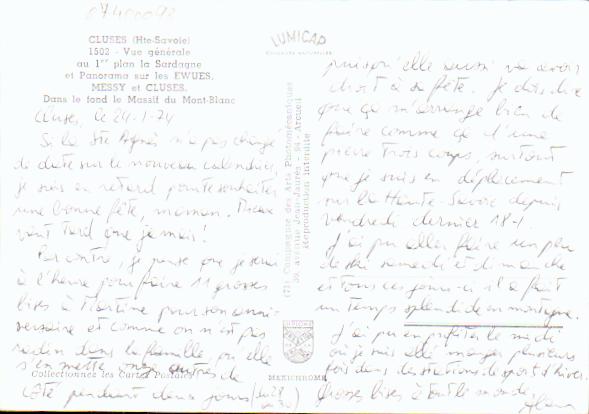 07400092
CLUSES (Hte-Savoie)
1502 - Vue générale
au 1er plan la Sardagne
et Panorama sur les EWUES,
MESSY et CLUSES.
Dans le fond le Massif du Mont-Blanc
LUMICAP
Cluses, le 24-1-74
Si la Ste Agnès n'a pas changé
de date sur le nouveau calendrier,
je suis en retard pour te souhaiter
une bonne fête, maman. Mieux
vaut tard que jamais!
Par contre, je pense que je serai
à l'heure pour faire 11 grosses
bises à Martine pour son anni-
versaire et comme on n'est pas
radin dans la famille,
s'en mettre de
côté pendant deux jours
Collectionnez les Cartes Postales
(71) Compagnie des Arts Photomécaniques
39, avenue Jean-Jaurès - 94 - Arcueil
Reproduction interdite
MEXICHROME
puisqu'elle aussi va avoir
droit à sa fête. Je dois dire
que ça m'arrange bien de
faire comme ça d'une
pierre trois coups, surtout
que je suis en déplacement
sur la Haute-Savoie depuis
vendredi dernier 18-1.
J'ai pu aller faire un peu
de ski samedi et dimanche
et tous ces jours-ci il a fait
un temps splendide en montagne.
J'ai pu en profiter le midi
où je suis allé manger plusieurs
fois dans des stations de sport d'hiver.
Grosses bises à tout le monde